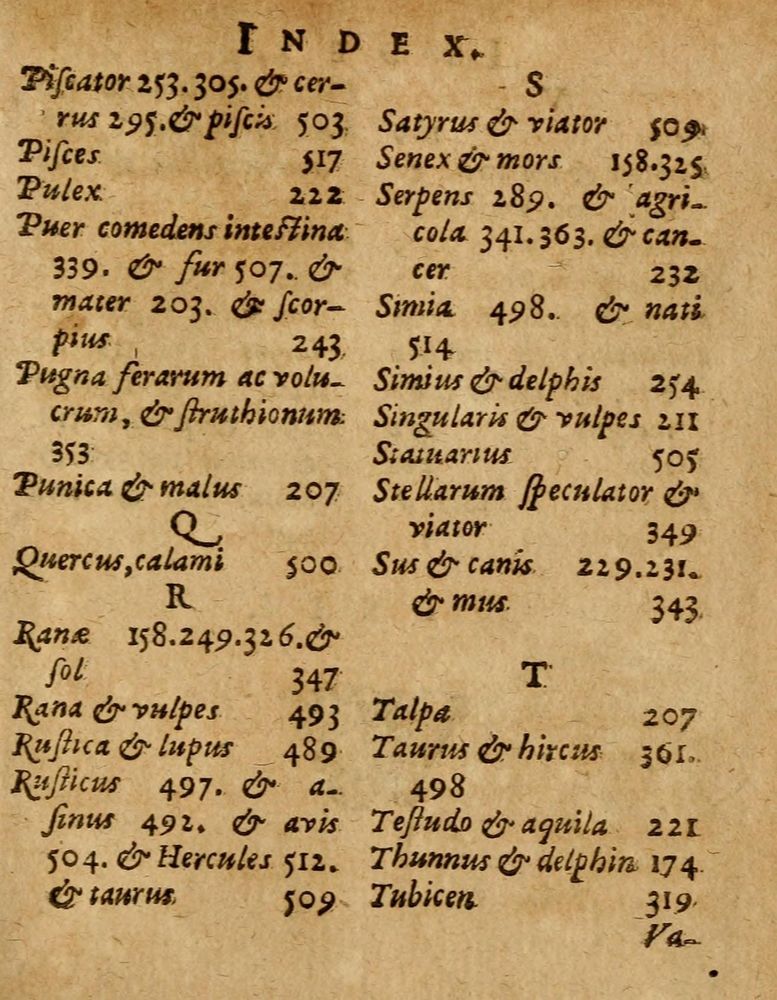 INDEX.
Piſcator 253.305. & cer-
rus 295. & piſcis 503
Piſces 517
Pulex 222
Puer comedens inteſtina
339. & fur 507. &
mater 203. & ſcor-
pius 243
Pugna ferarum ac volu-
crum, & ſtruthionum
353
Punica & malus 207
Q
Quercus, calami 500
R
Ranæ 158.249.326. &
ſol 347
Rana & vulpes 493
Ruſtica & lupus 489
Ruſticus 497. & a-
ſinus 492. & avis
504. & Hercules 512.
& taurus 509
S
Satyrus & viator 509
Senex & mors 158.325
Serpens 289. & agri-
cola 341.363. & can-
cer 232
Simia 498. & nati
514
Simius & delphis 254
Singularis & vulpes 211
Statuarius 505
Stellarum ſpeculator &
viator 349
Sus & canis 229.231.
& mus 343
T
Talpa 207
Taurus & hircus 361.
498
Teſtudo & aquila 221
Thunnus & delphin 174
Tubicen 319
Va-